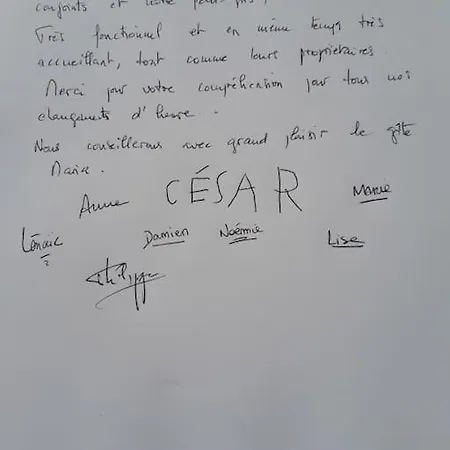 conjoints et notre
Très fonctionnel et en même temps très
accueillant, tout comme leurs propriétaires.
Merci pour votre compréhension pour tous nos
changements d'heure.
Nous conseillerons avec grand plaisir le gîte
Maria.
Anne CÉSAR Marie
Lénaïc Damien Noémie Lise
Philippe